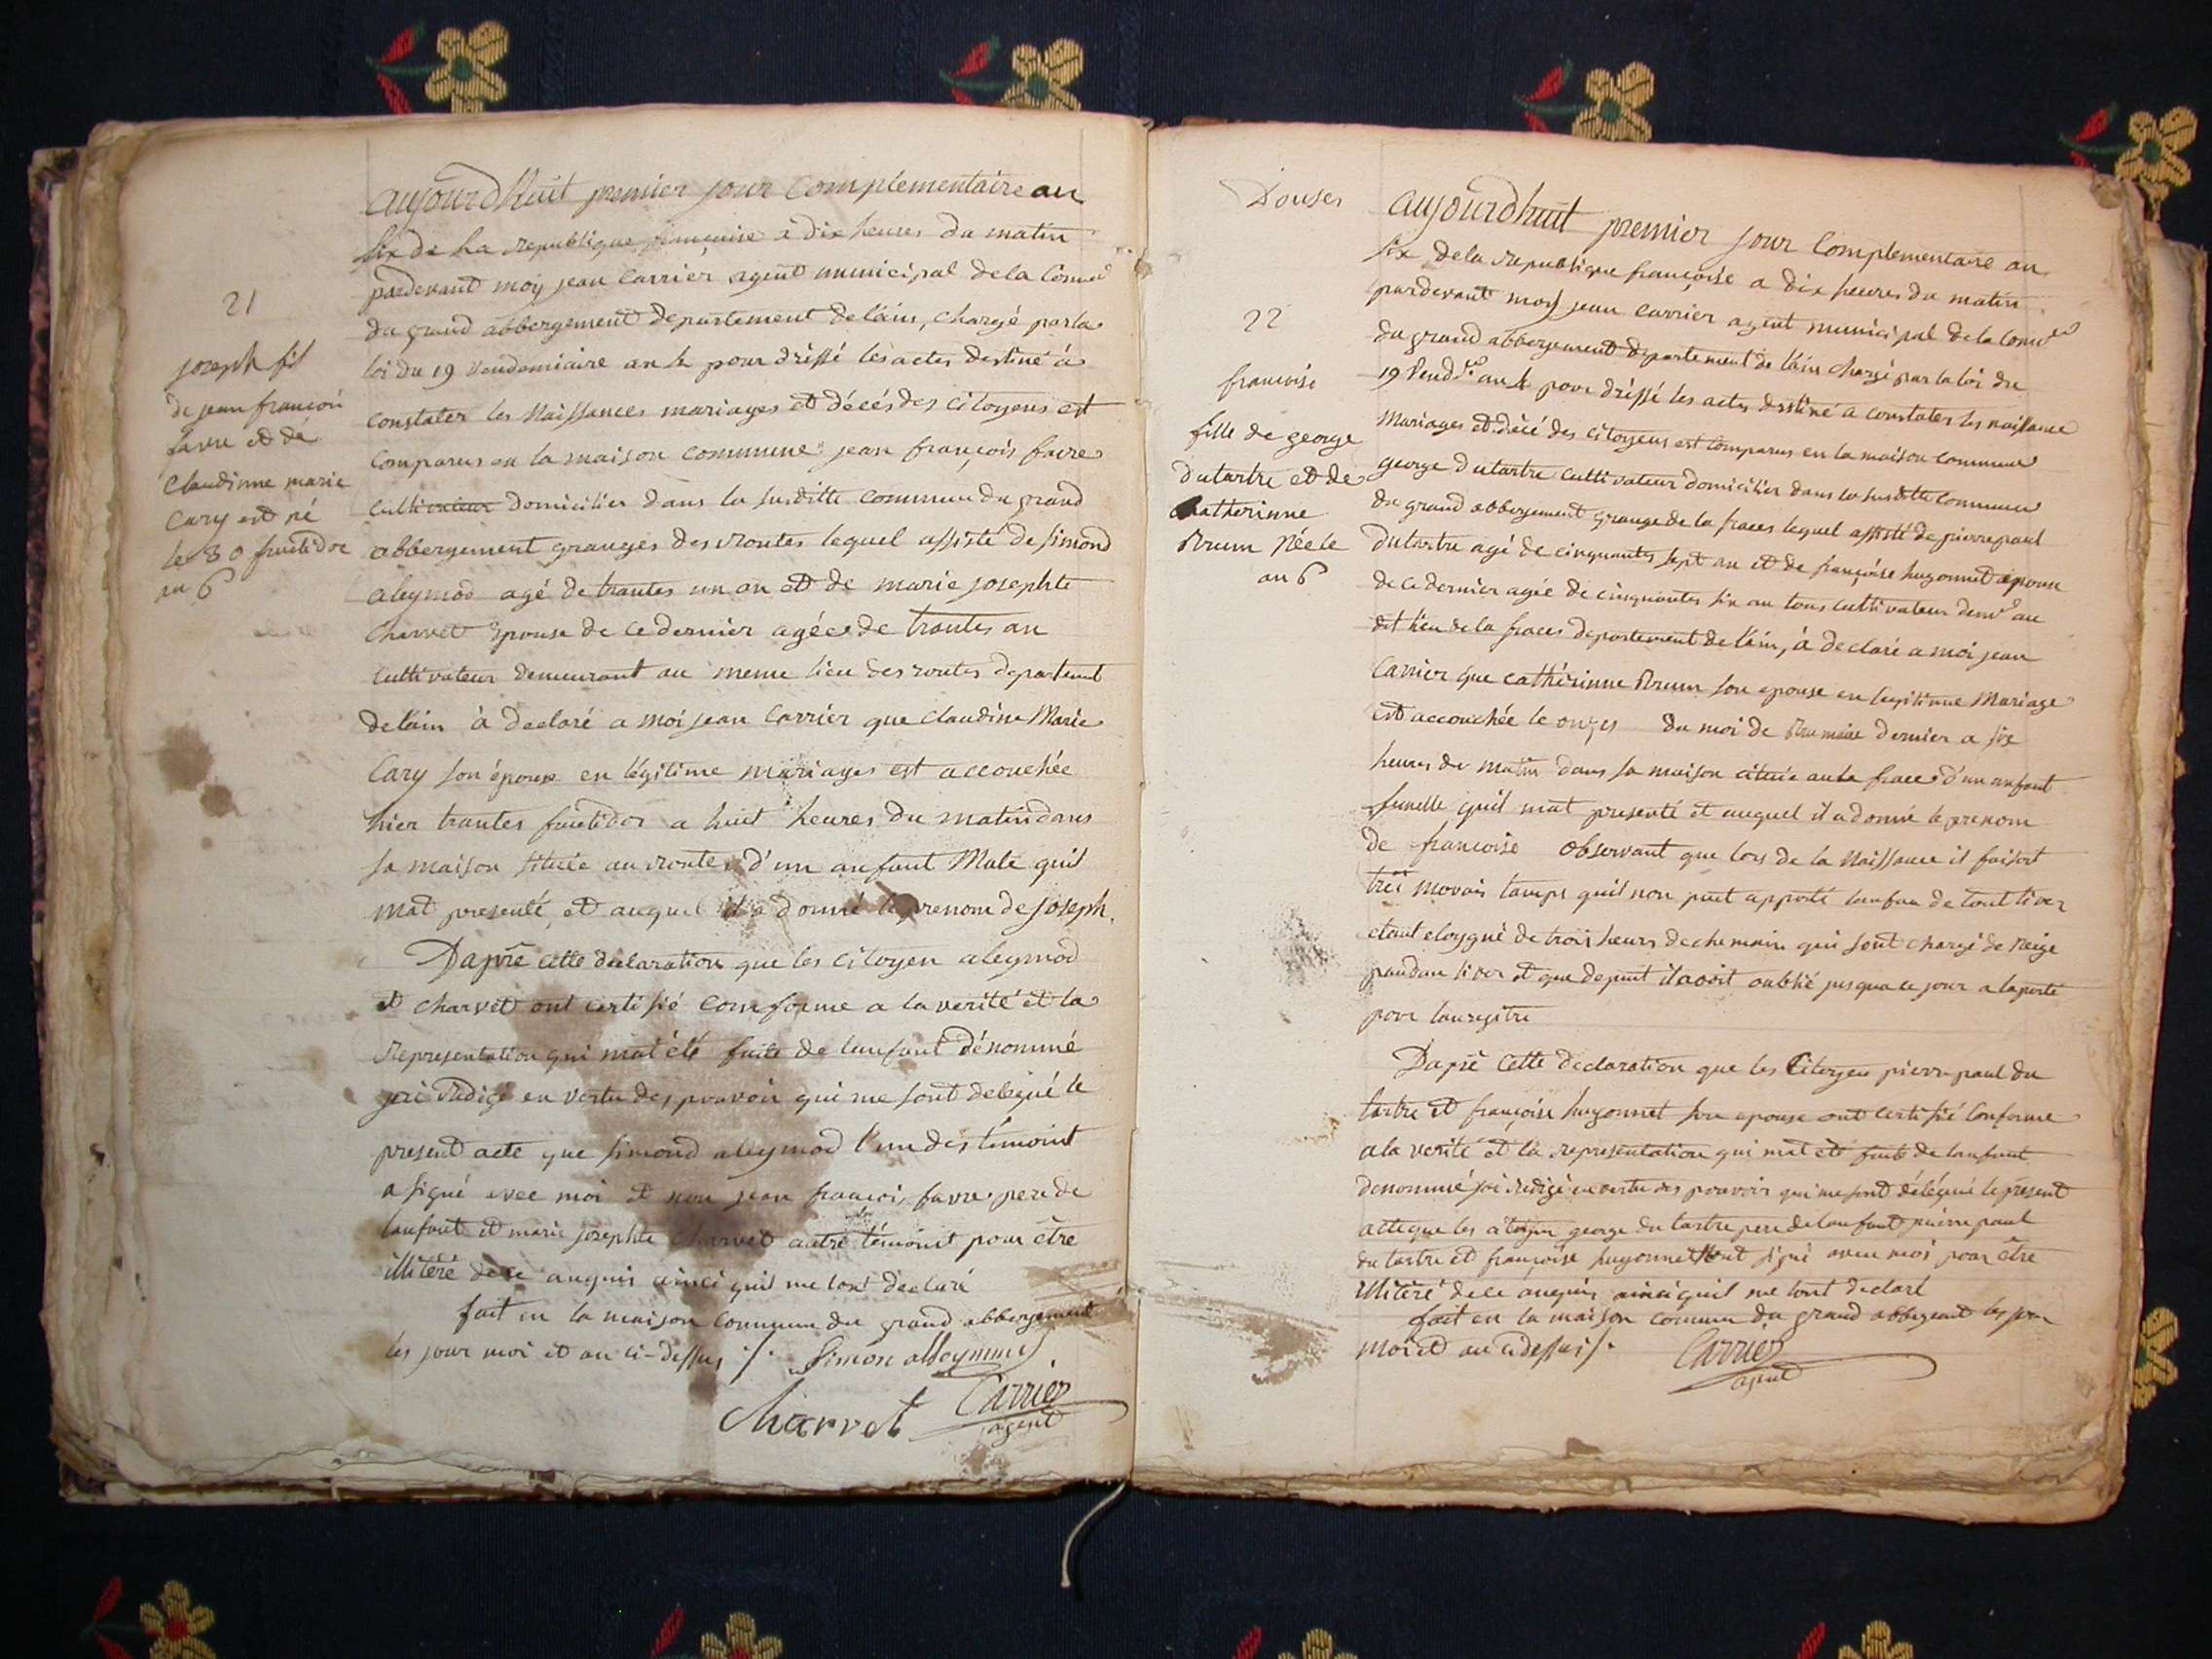 21
joseph fil
de jean françois
favre et de
Claudinne marie
Cary est né
le 30 fructidor
an 6
aujourdhuit premier jour Complementaire an
six de La republique françoise a dix heures du matin
pardevant moy jean Carrier agent municipal de la Comne
du grand abbergement departement de l'ain, chargé par la
loi du 19 vendemiaire an 4 pour dréssé les actes destiné à
constater les Naissances mariages et décés des citoyens est
comparus en la maison commune jean françois favre
cultivateur domicilier dans la susditte commune du grand
abbergement granges des routes lequel assisté de simond
aleymod agé de trantes un an et de marie josephte
Charvet epouse de ce dernier agée de trantes an
cultivateur demeurant au meme lieu des routes departement
de l'ain à declaré a moi jean Carrier que Claudine Marie
Cary son épouse en légitime mariages est accouchée
hier trantes fructidor a huit heures du matin dans
sa maison située au routes d'un anfant Male quil
mat presenté, et auquel il a donné le prenom de joseph.
Dapré cette declaration que les Citoyen aleymod
et charvet ont certifié comforme a la verité et la
representation qui mat été faite de lanfant dénommé
jai redigé en vertu des pouvoir qui me sont delegué le
present acte que simond aleymod l'un des témoint
a signé avec moi et non jean francois favre pere de
lanfant et marie josephte Charvet autre témoint pour être
illitéré de ce anquis ainci quil me lont declaré
fait en la maison Commune du grand abbergement
les jour moi et an ci-dessus /. Simon alleymme
Charvet Carrier
agent
Douses
22
francoise
fille de george
dutartre et de
Catherinne
Brum Née le
an 6
aujourdhuit premier jour Complementaire an
six de la republique françoise a dix heures du matin
pardevant moy jean Carrier agent municipal de la Comne
du grand abbergement departement de l'ain chargé par la loi du
19 Vendre an 4 pour dréssé les actes destiné a constater les naissance
Mariages et décé des citoyens est comparus en la maison commune
george dutartre cultivateur domicilier dans la susditte commune
du grand abbergement grange de la fraces lequel assisté de pierre paul
Dutartre agé de cinquantes sept an et de françoise hugonnet epouse
de ce dernier agée de cinquantes six an tous cultivateur demt au
dit lieu de la fraces departement de l'ain, à declaré a moi jean
Carrier que cathérinne Brum son epouse en legitime Mariage
est accouchée le onzes du moi de Brumaire dernier a six
heures du matin dans sa maison cituée au la frace d'un anfant
femelle quil mat presenté et auquel il a donné le prenom
de francoise observant que lors de la Naissance il faisoit
tréi movais tamps quil non put apporté lanfan de tout liver
etant eloygné de trois heurs de chemain qui sont chargé de Neige
pandan liver et que depuit il avoit oublié jusqua ce jour a laporté
pour lauregitre
Dapré cette declaration que les Citoyen pierre paul du
tartre et françoise hugonnet son epouse ont certifié Conforme
a la verité et la representation qui mat eté faite de lanfant
denommé jai redigé en vertu des pouvoir qui me sont délégué le present
acte que les citoyen george du tartre pere de lanfant pierre paul
du tartre et françoise hugonnet nont signé avec moi pour être
illitéré de ce anquis ainci quil me lont declaré
fait en la maison commu du grand abbergement les jour
moi et an ci dessus /. Carrier
agent